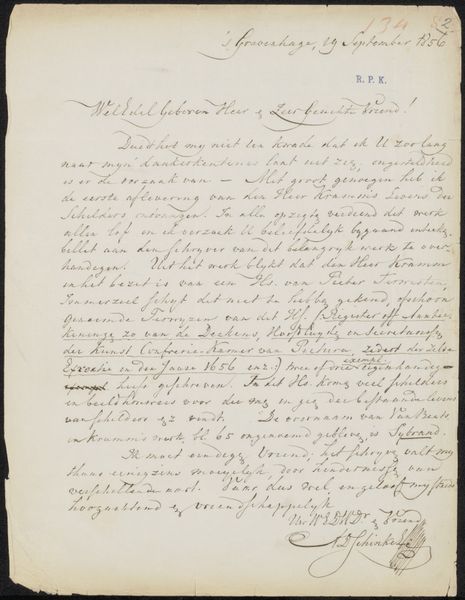 134 2.
's Gravenhage, 19 September 1856
R. P. K.
WelEdel Geboren Heer & Zeer Geachte Vriend!
Duidt het my niet ten kwade dat ik U zoo lang
naar myn dankerkentenis laat uitzien, ongesteldheid
is er de oorzaak van — Met groot genoegen heb ik
de eerste aflevering van den Heer Kramm's Levens der
Schilders ontvangen. In alle opzigte verdiend dit werk
allen lof en ik verzoek U beleefdelyk bygaand
billet aan den schryver van dit belangryk werk te over-
handigen. Uit het werk blykt dat den Heer Kramm
in het bezit is van een Hs. van Pieter Terwesten,
Immerzeel schynt dit niet te hebben gekend, ofschoon
genoemde Terwesten van dit Hs. (Register off Aantee-
keninge zo van de Deekens, Hooftluyden en Secretarissen
der Kunst Confrerie-Kamer van Pictura, zedert der zelver
Erectie in den Jaare 1656 enz.) twee of drie exempl. eigenhandig
heeft geschreven. In dit Hs. komen veel schilders
en beeldhouwers voor die men in geen der bestaande levens
van schilders enz. vindt. De voornaam van Van Beest
in Kramm's werk, bl. 65 ongenoemd gebleven, is Sybrand.
Ik moet eindigen Vriend; het schryven valt my
thans eenigzins moeyelyk door hindernissen van
verschillende aard. Vaar dus wel en geloof my steeds
hoogachtend & vriendschappelyk
Uw W.E.D.W.Dr & Vriend
A.D. Schinkel